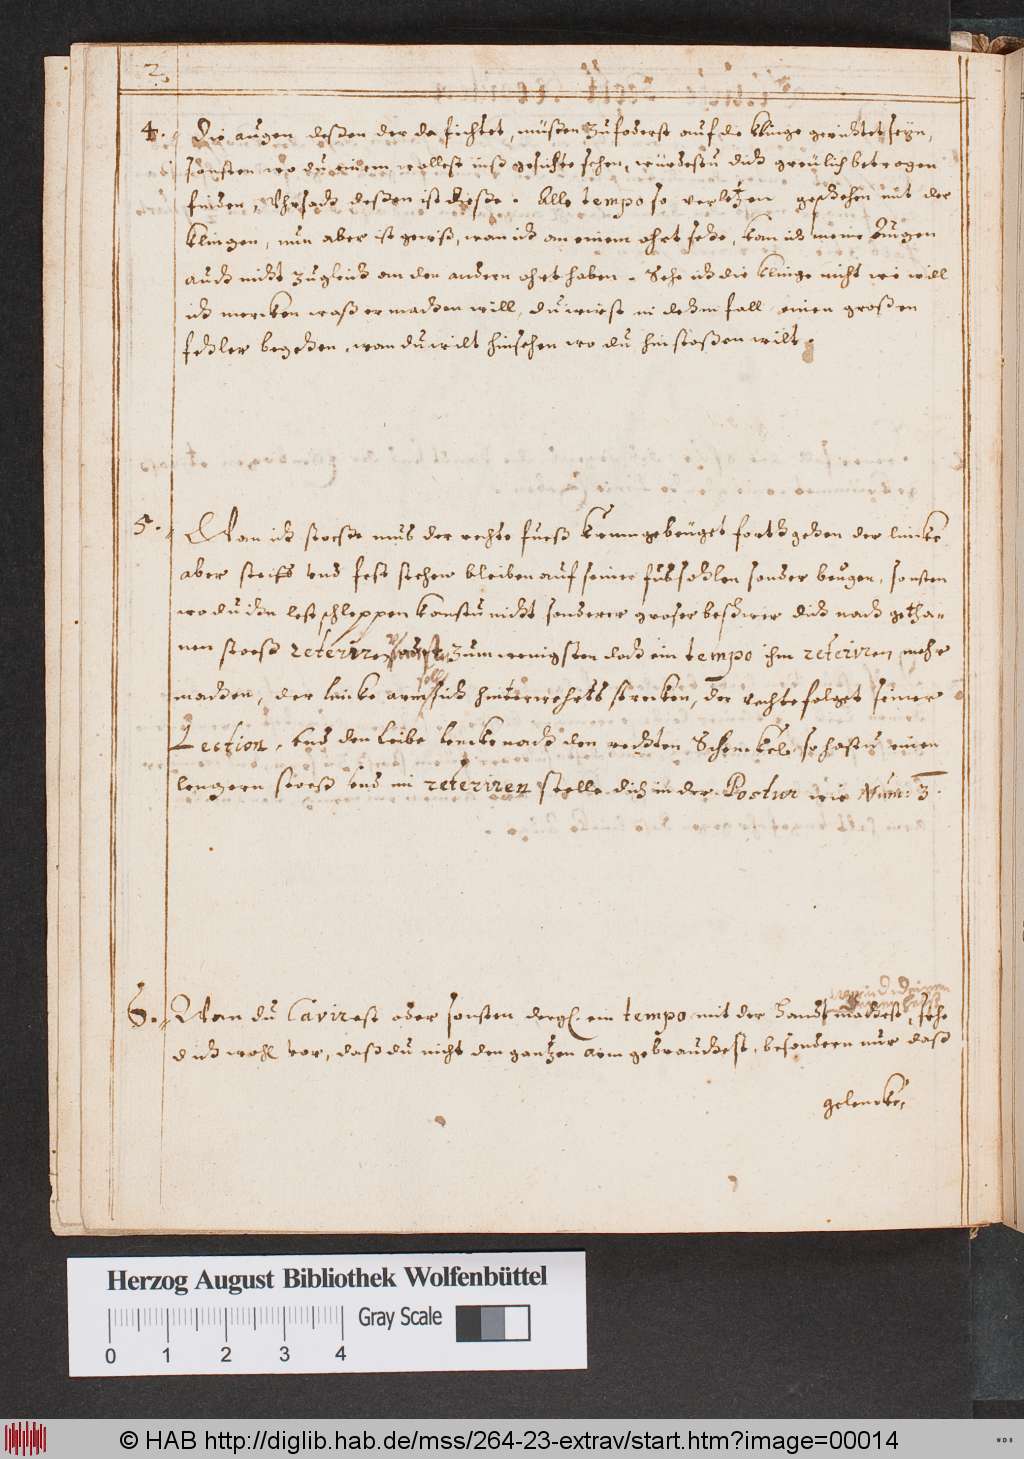 2.
4. Die augen deßen der da fichtet, müßen zuforderst auf die klinge gerichtet seyn,
sonsten wo du einem wollest inß gesichte sehen, würdestu dich greülich betrogen
finden, Uhrsach deßen ist dieße. Alle tempo so verletzen geschehen mit der
klingen, nun aber ist gewiß, wan ich an einem ohrt sehe, kan ich meine Augen
auch nicht zugleich an den andern ohrt haben. Sehe ich die klinge nicht wie will
ich mercken waß er machen will, du wirst in dehm fall einen großen
fehler begehen, wan du wilt hinsehen wo du hin stoßen wilt.
5. Wan ich stoeße mus der rechte fueß krum gebeuget forth gehen der lincke
aber steiff und fest stehen bleiben auf seiner fußsohlen sonder beugen, sonsten
wo du ihn lest schleppen kanstu nicht sonderer groser beschwer dich nach getha-
nen stoeß reterire zum wenigsten doch ein tempo ihm reteriren mehr
machen, der lincke arm soll sich hinterwehrts strecken, der rechte folget seiner
Lection, und den leibe lencke nach den rechten Schenckel so hastu einen
lengern stoeß und im reteriren stelle dich in der Postur wie Num: 3.
6. Wan du Cavirest oder sonsten dergl. ein tempo mit der Handt machest, sehe
dich wohl vor, daß du nicht den gantzen arm gebrauchest, besondern nur daß
gelencke,
Herzog August Bibliothek Wolfenbüttel
Gray Scale
0 1 2 3 4
© HAB http://diglib.hab.de/mss/264-23-extrav/start.htm?image=00014